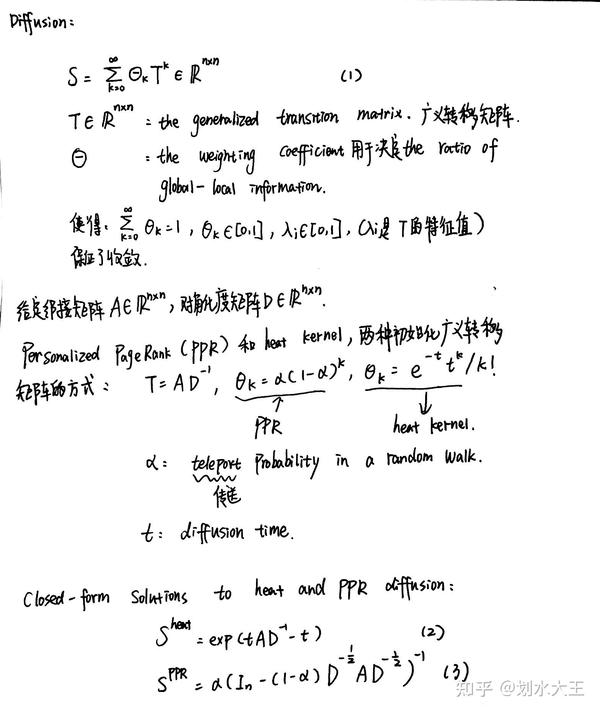 Diffusion:
S = ∑_{k=0}^{∞} Θ_k T^k ∈ ℝ^{n×n} (1)
T ∈ ℝ^{n×n} : the generalized transition matrix. 广义转移矩阵.
Θ : the weighting coefficient 用于决定 the ratio of
global-local information.
使得: ∑_{k=0}^{∞} θ_k = 1, θ_k ∈ [0,1], λ_i ∈ [0,1], (λ_i是 T 的特征值)
保证了收敛.
给定邻接矩阵 A ∈ ℝ^{n×n}, 对角化度矩阵 D ∈ ℝ^{n×n}.
Personalized PageRank (PPR) 和 heat kernel, 两种初始化广义转移
矩阵的方式: T = AD^{-1}, θ_k = α(1-α)^k, θ_k = e^{-t} t^k / k!
PPR heat kernel.
α: teleport probability in a random walk.
传送
t: diffusion time.
Closed-form solutions to heat and PPR diffusion:
S^{heat} = exp(tAD^{-1} - t) (2)
S^{PPR} = α(I_n - (1-α) D^{-1/2} A D^{-1/2})^{-1} (3)
知乎 @划水大王